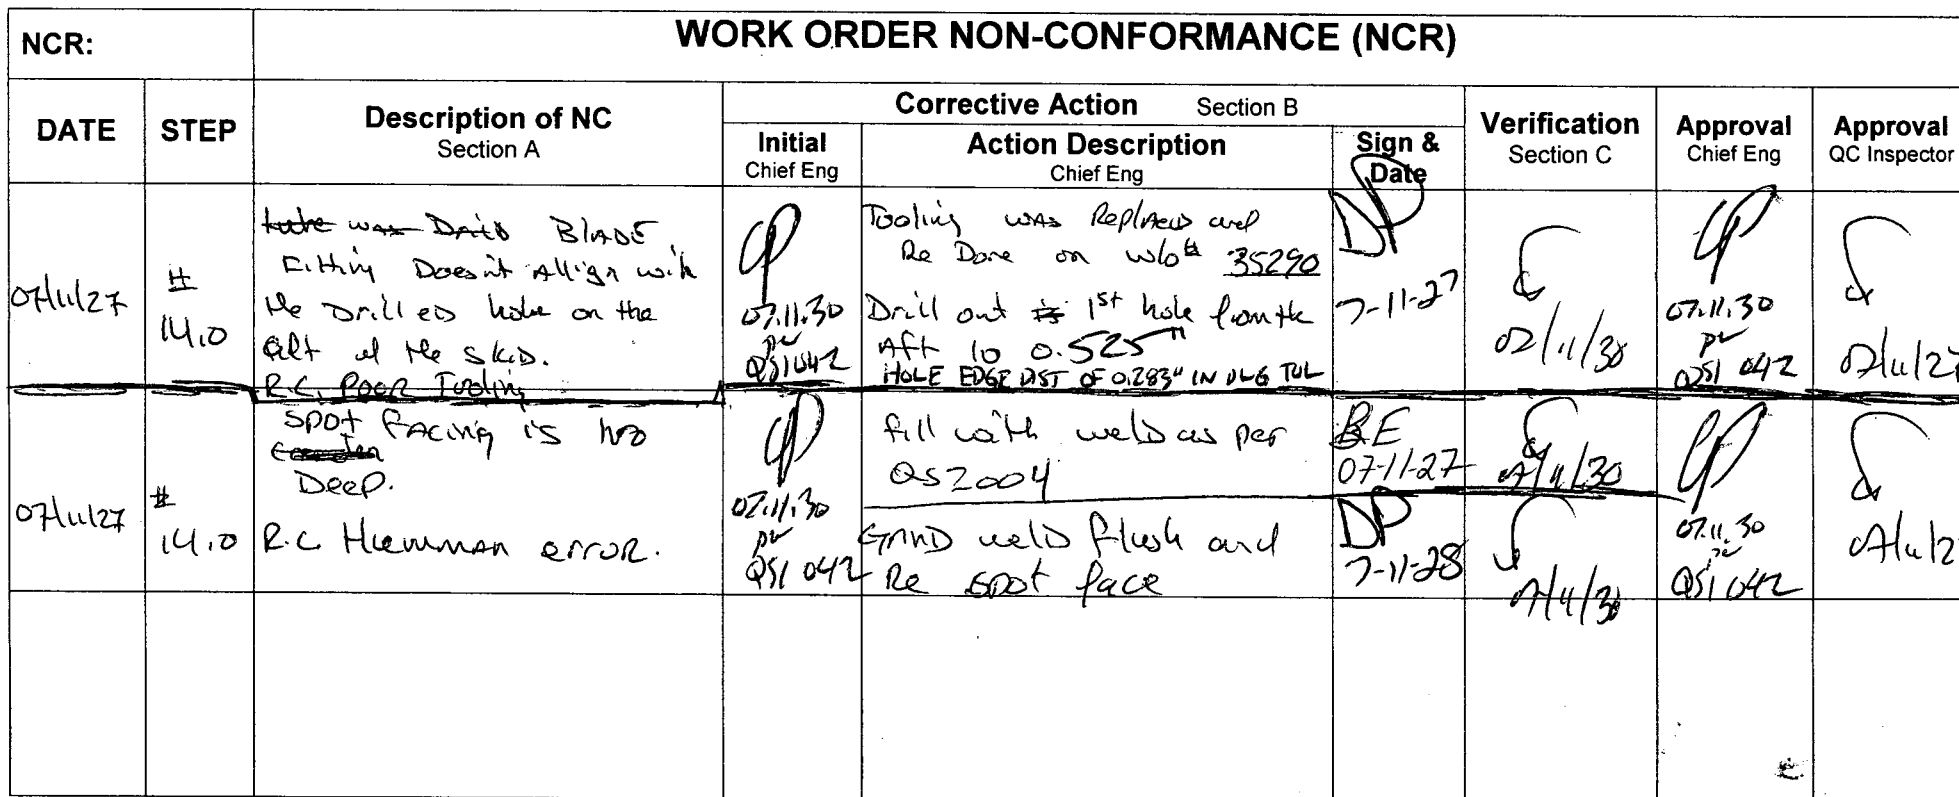 NCR:
WORK ORDER NON-CONFORMANCE (NCR)
DATE
STEP
Description of NC
Section A
Corrective Action Section B
Initial
Chief Eng
Action Description
Chief Eng
Sign &
Date
Verification
Section C
Approval
Chief Eng
Approval
QC Inspector
07/11/27
#
14.0
BLADE
Fitting Doesn't Allign with
the Drilled hole on the
aft of the skid.
R.C. Poor Tooling
07.11.30
QSI 042
Tooling was Replaced and
Re Done on w/o# 35290
Drill out 1st hole from the
Aft to 0.525"
HOLE EDGE DIST OF 0.283" IN
DP
7-11-27
07/11/30
07.11.30
QSI 042
07/11/27
07/11/27
#
14.0
Spot Facing is too
Deep.
R.C. Humman error.
07.11.30
QSI 042
fill with weld as per
QS2004
Grind weld flush and
Re spot face
B.E
07-11-27
DP
7-11-28
07/11/30
07/11/30
07.11.30
QSI 042
07/11/2